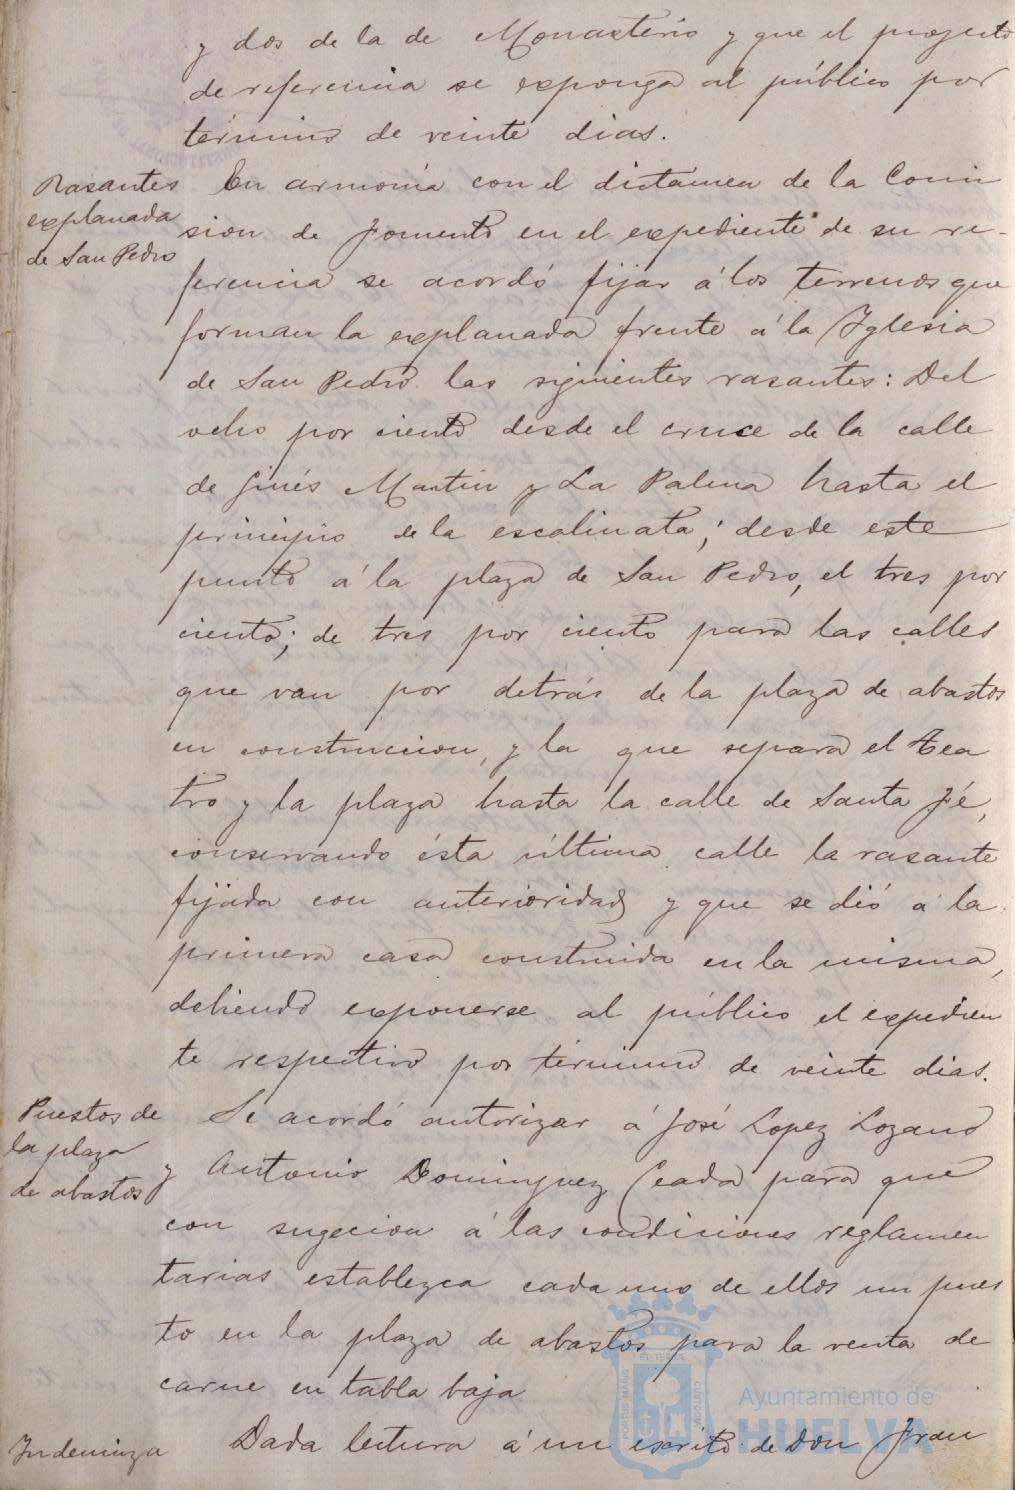 y dos de la de Monasterio y que el proyecto
de referencia se exponga al público por
término de veinte dias.
Rasantes
explanada
de San Pedro
En armonia con el dictamen de la Comi
sion de Fomento en el expediente de su re-
ferencia se acordó fijar á los terrenos que
forman la explanada frente á la Iglesia
de San Pedro las siguientes rasantes: Del
ocho por ciento desde el cruce de la calle
de Ginés Martin y La Palma hasta el
principio de la escalinata; desde este
punto á la plaza de San Pedro, el tres por
ciento; de tres por ciento para las calles
que van por detrás de la plaza de abastos
en construccion, y la que separa el tea
tro y la plaza hasta la calle de Santa Fé,
conservando ésta última calle la rasante
fijada con anterioridad y que se dió á la
primera casa construida en la misma,
debiendo exponerse al público el expedien
te respectivo por término de veinte dias.
Puestos de
la plaza
de abastos
Se acordó autorizar á José Lopez Lozano
y Antonio Dominguez Ceada para que
con sugecion á las condiciones reglamen
tarias establezca cada uno de ellos un pues
to en la plaza de abastos para la venta de
carne en tabla baja
Indemniza
Dada lectura á un escrito de Don Fran
Ayuntamiento de
HUELVA